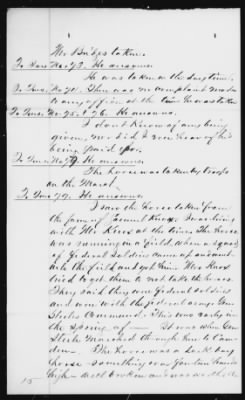 Mr Bridges taken.
To Inter No. 73. He answers
He was taken in the daytime.
To Inter. No. 74. There was no complaint made
to any officer at the time he was taken
To Inter. No. 75. & 76. He answers.
I don't know of any being
given, nor did I ever hear of his
being paid for.
To Inter No. 77 He answers
The horse was taken by troops
on the March.
To Inter 79. He answers
I saw the horse taken from
the farm of Knox. I was
with Mr Knox at the time. The horse
was running in a field, when a squad
of Federal Soldiers came up and went
into the field and got him. Mrs Knox
tried to get them to not take the horse.
They said they were Federal soldiers
and were with the federal army Gen
Steeles Command. This was early in
the spring of — It was when Gen
Steele Marched through here to Cam-
den. The horse was a dark bay
horse something over fourteen hands
high — well broken and was worth a
15